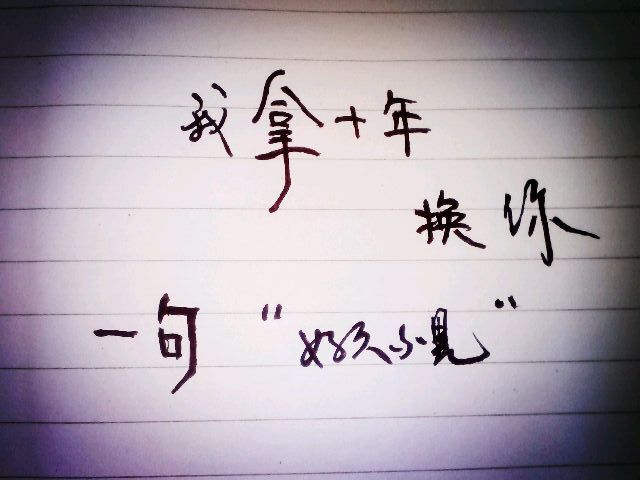 我拿十年
换你
一句“好久不见”